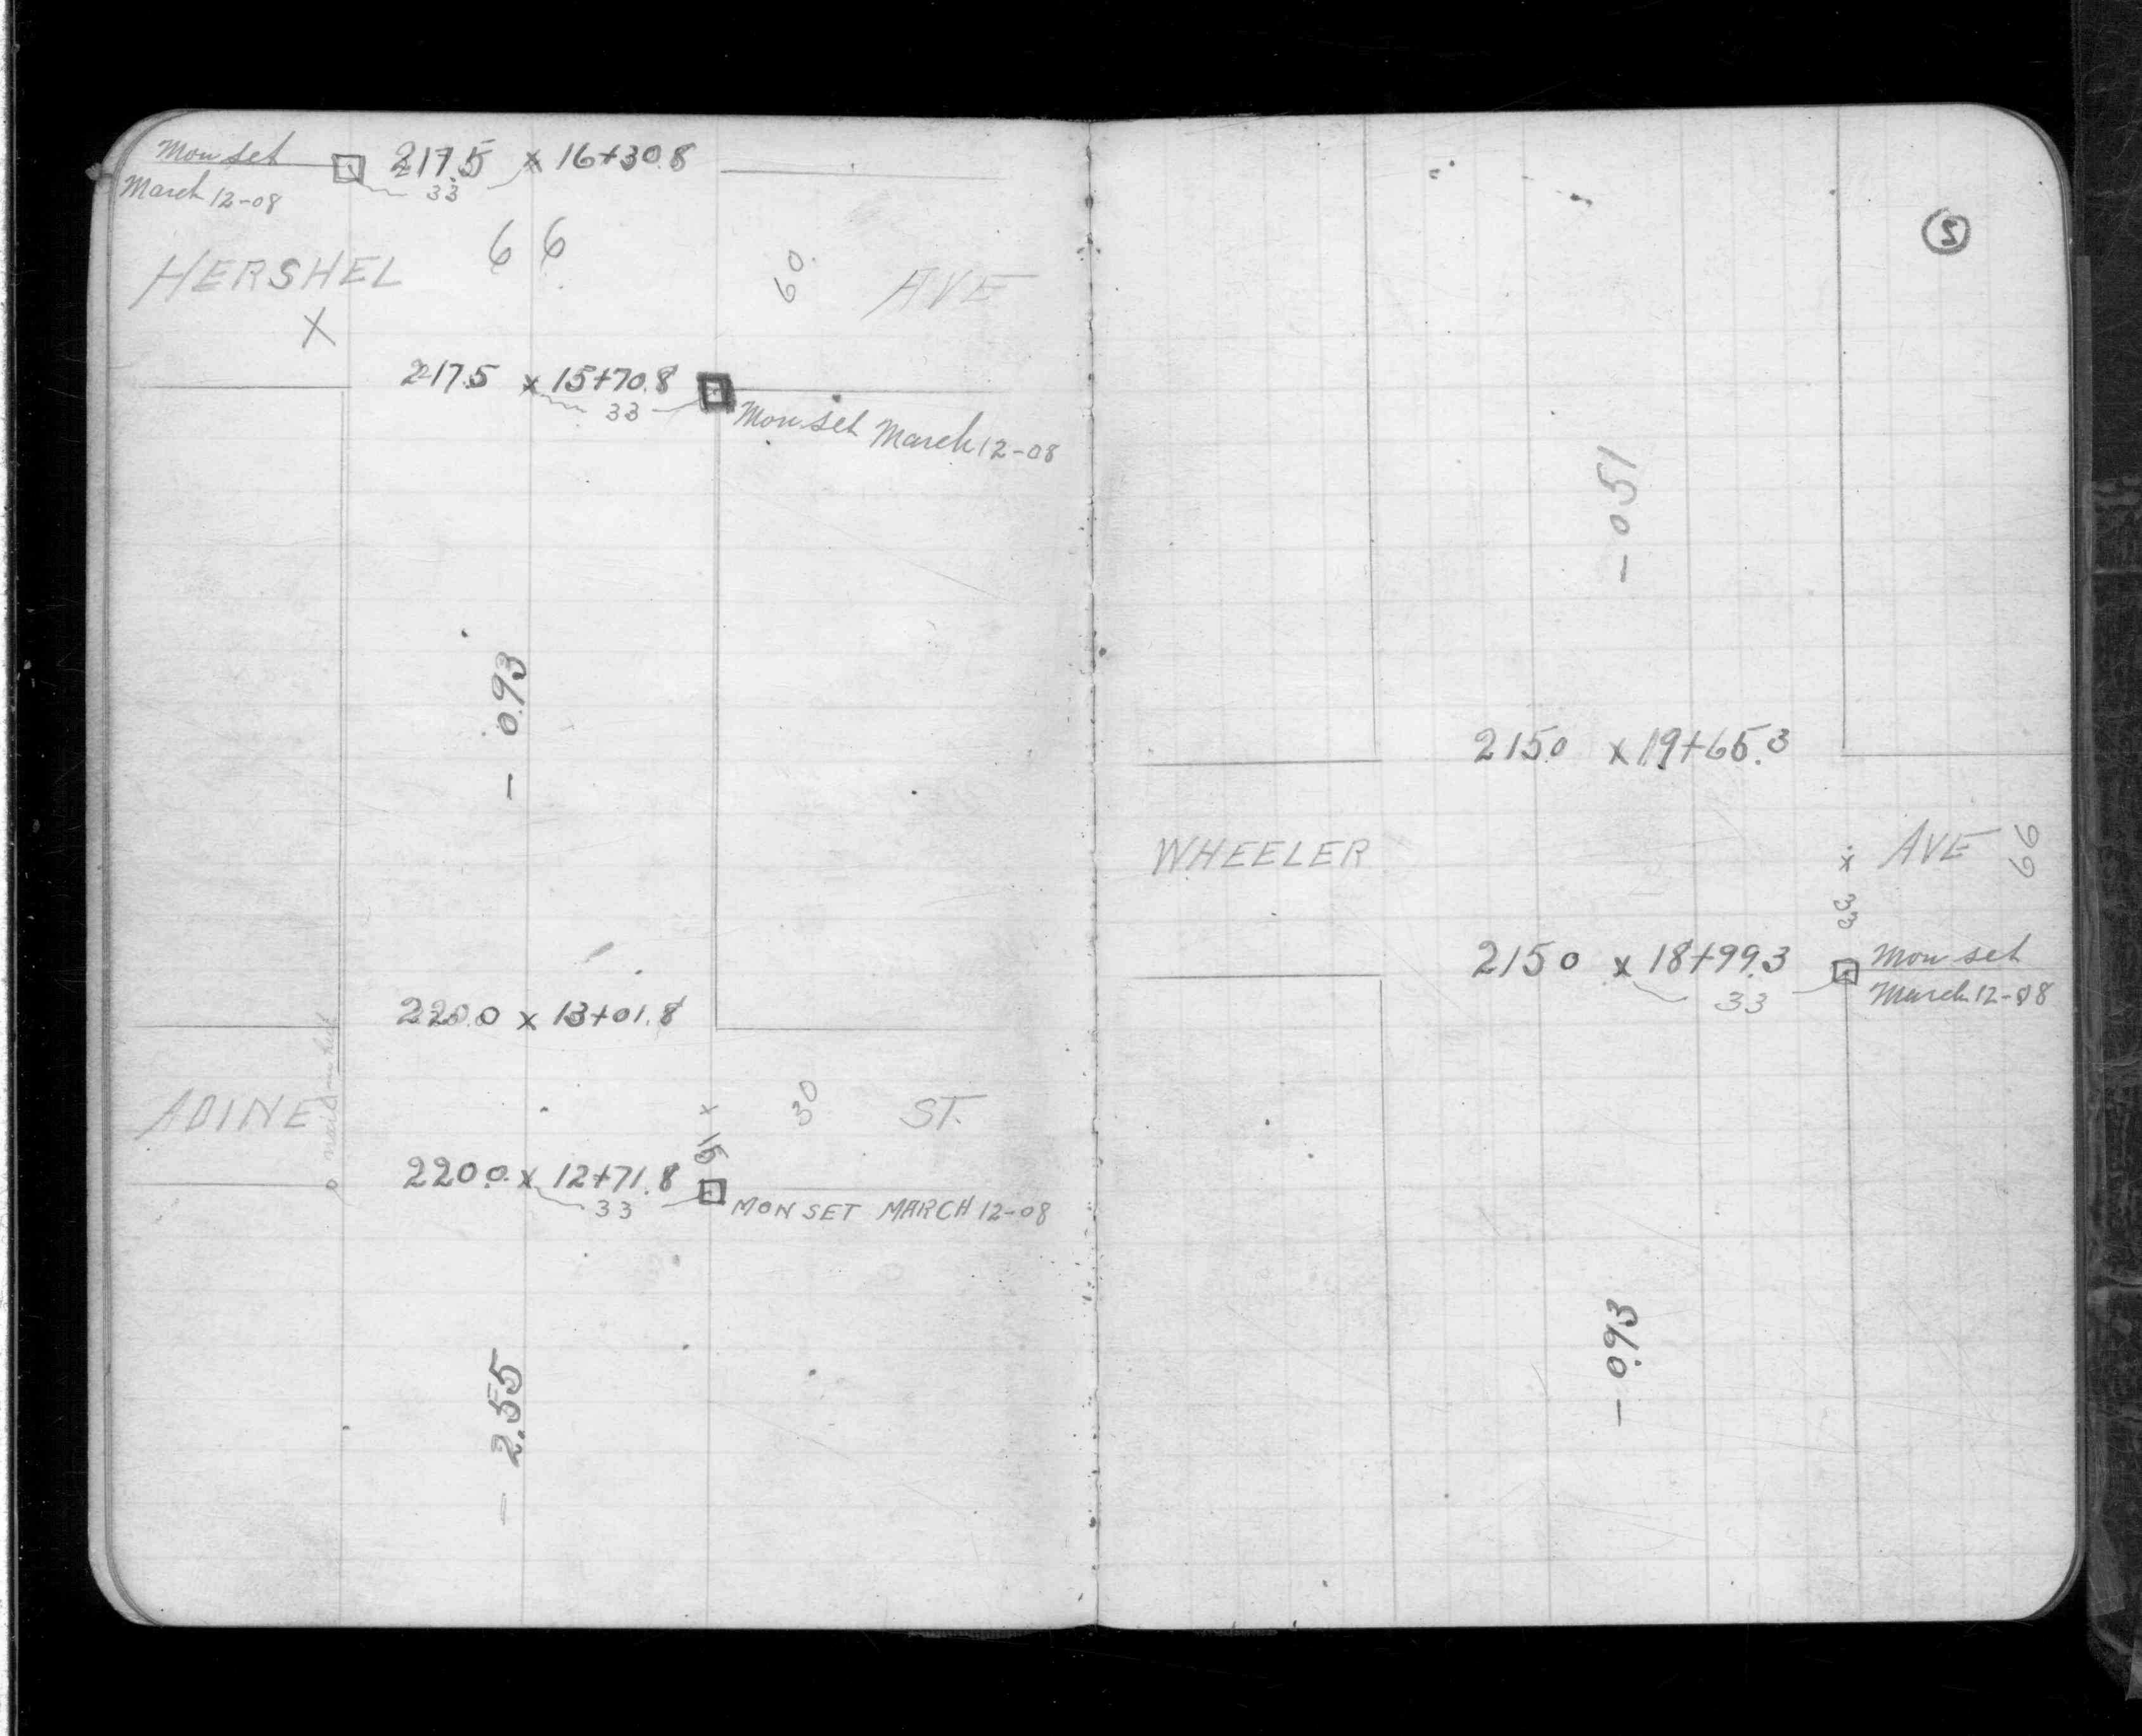 Mon set
March 12-08
217.5 x 16+30.8
33
66
HERSHEL
60.
AVE
X
217.5 x 15+70.8
33
Mon set March 12-08
- 0.93
220.0 x 13+01.8
ADINE
30
ST.
x
15
220.0 x 12+71.8
33
MON SET MARCH 12-08
- 2.55
5
- 051
215.0 x 19+65.3
WHEELER
x
AVE
66
33
215.0 x 18+99.3
33
Mon set
March 12-08
- 0.93